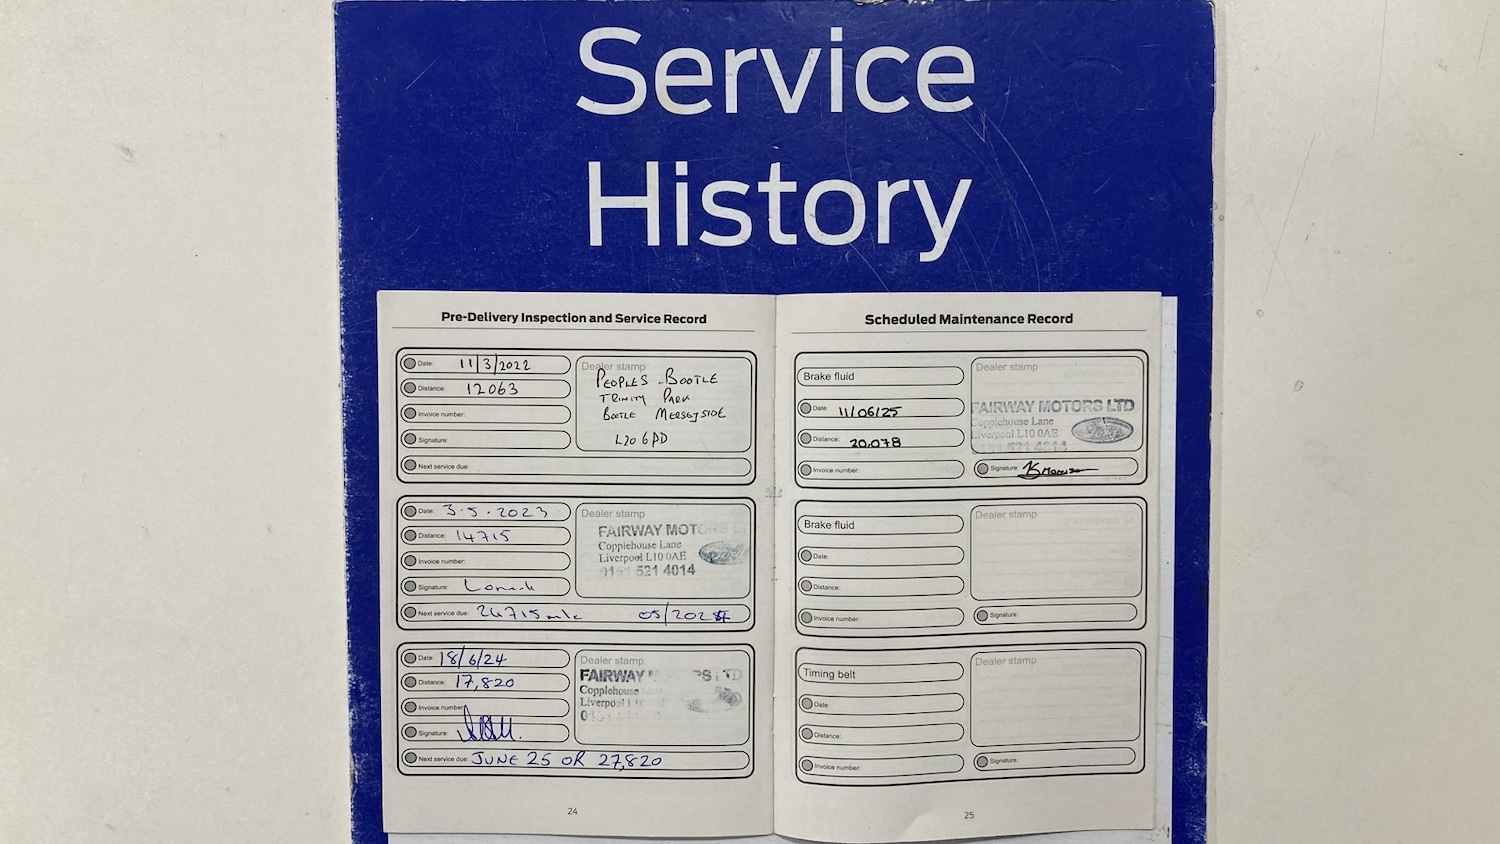 Service
History
Pre-Delivery Inspection and Service Record
Date: 11/3/2022
Distance: 12063
Invoice number:
Signature:
Next service due:
Dealer stamp
PEOPLES - BOOTLE
TRINITY PARK
BOOTLE MERSEYSIDE
L20 6PD
Date: 3.5.2023
Distance: 14715
Invoice number:
Signature:
Next service due: 24715 mls 05/2024
Dealer stamp
FAIRWAY MOTORS
Copplehouse Lane
Liverpool L10 0AE
0151 521 4014
Date: 18/6/24
Distance: 17,820
Invoice number:
Signature:
Next service due: JUNE 25 OR 27,820
Dealer stamp
FAIRWAY MOTORS LTD
Copplehouse
Liverpool L10
0151
24
Scheduled Maintenance Record
Brake fluid
Date: 11/06/25
Distance: 20,078
Invoice number:
Dealer stamp
FAIRWAY MOTORS LTD
Copplehouse Lane
Liverpool L10 0AE
0151 521 4014
Signature:
Brake fluid
Date:
Distance:
Invoice number:
Dealer stamp
Signature:
Timing belt
Date:
Distance:
Invoice number:
Dealer stamp
Signature:
25